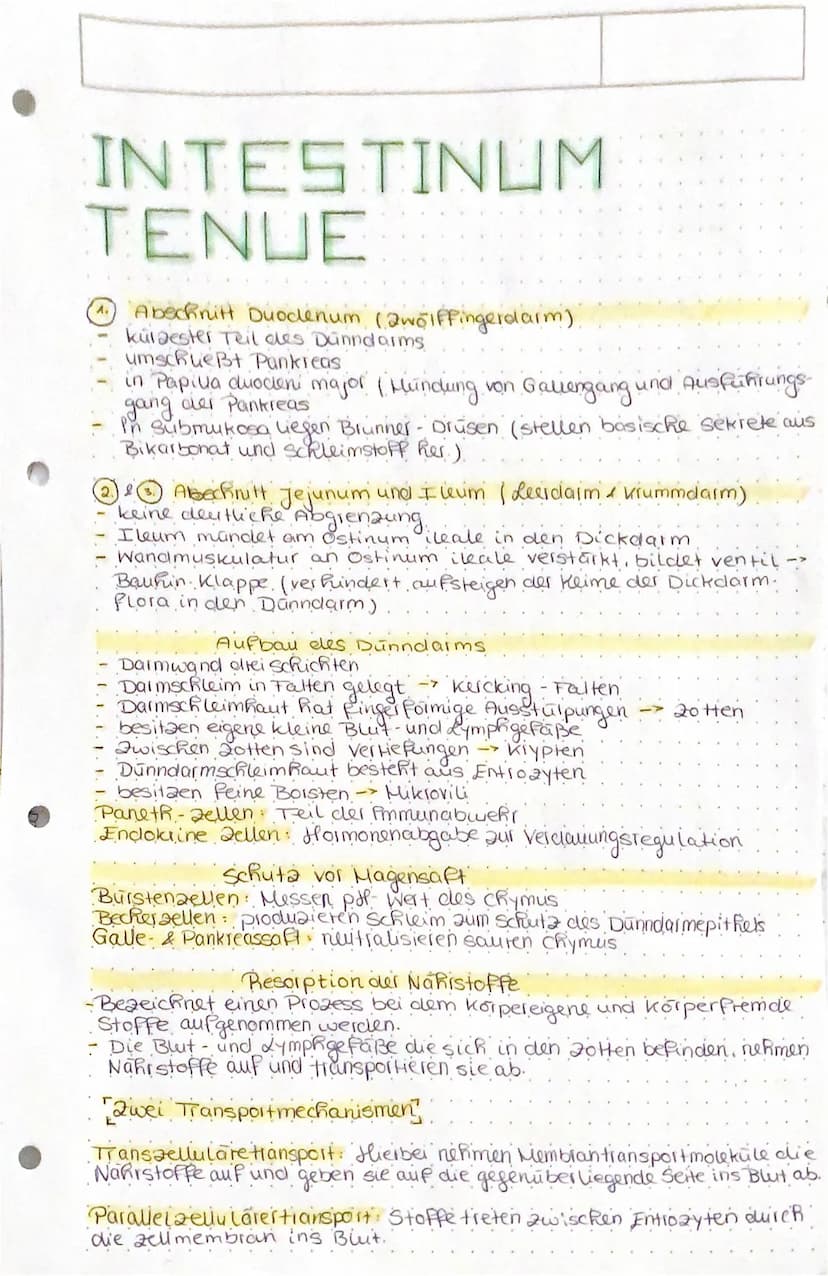 INTESTINUM
TENUE
1. Abschnitt Duodenum (Zwölffingerdarm)
- kürzester Teil des Dünndarms
- umschließt Pankreas
- in Papilla duodeni major (Mündung von Gallengang und Ausführungs-
gang der Pankreas
- In Submukosa liegen Brunner-Drüsen (stellen basische Sekrete aus
Bikarbonat und Schleimstoff her)
2. & 3. Abschnitt Jejunum und Ileum (Leerdarm & Krummdarm)
- keine deutliche Abgrenzung
- Ileum mündet am Ostinum ileale in den Dickdarm
- Wandmuskulatur an Ostinum ileale verstärkt, bildet ventil ->
Bauhin-Klappe (verhindert aufsteigen der Keime der Dickdarm-
flora in den Dünndarm)
Aufbau des Dünndarms
- Darmwand drei Schichten
- Darmschleim in Falten gelegt -> Kercking-Falten
- Darmschleimhaut hat fingerförmige Ausstülpungen -> Zotten
- besitzen eigene kleine Blut- und Lymphgefäße
- zwischen Zotten sind Vertiefungen -> Krypten
- Dünndarmschleimhaut besteht aus Entrozyten
- besitzen feine Borsten -> Mikrovili
Paneth-Zellen: Teil der Immunabwehr
Endokrine Zellen: Hormonenabgabe zur Verdauungsregulation
Schutz vor Magensaft
Bürstenzellen: Messen pH-Wert des Chymus
Becherzellen: produzieren Schleim zum Schutz des Dünndarmepithels
Galle- & Pankreassaft: neutralisieren sauren Chymus
Resorption der Nährstoffe
- Bezeichnet einen Prozess bei dem körpereigene und körperfremde
Stoffe aufgenommen werden.
- Die Blut- und Lymphgefäße die sich in den Zotten befinden, nehmen
Nährstoffe auf und transportieren sie ab.
[Zwei Transportmechanismen]
Transzelluläretransport: Hierbei nehmen Membrantransportmoleküle die
Nährstoffe auf und geben sie auf die gegenüberliegende Seite ins Blut ab.
Parallelzellulärertransport: Stoffe treten zwischen Entrozyten durch
die Zellmembran ins Blut.